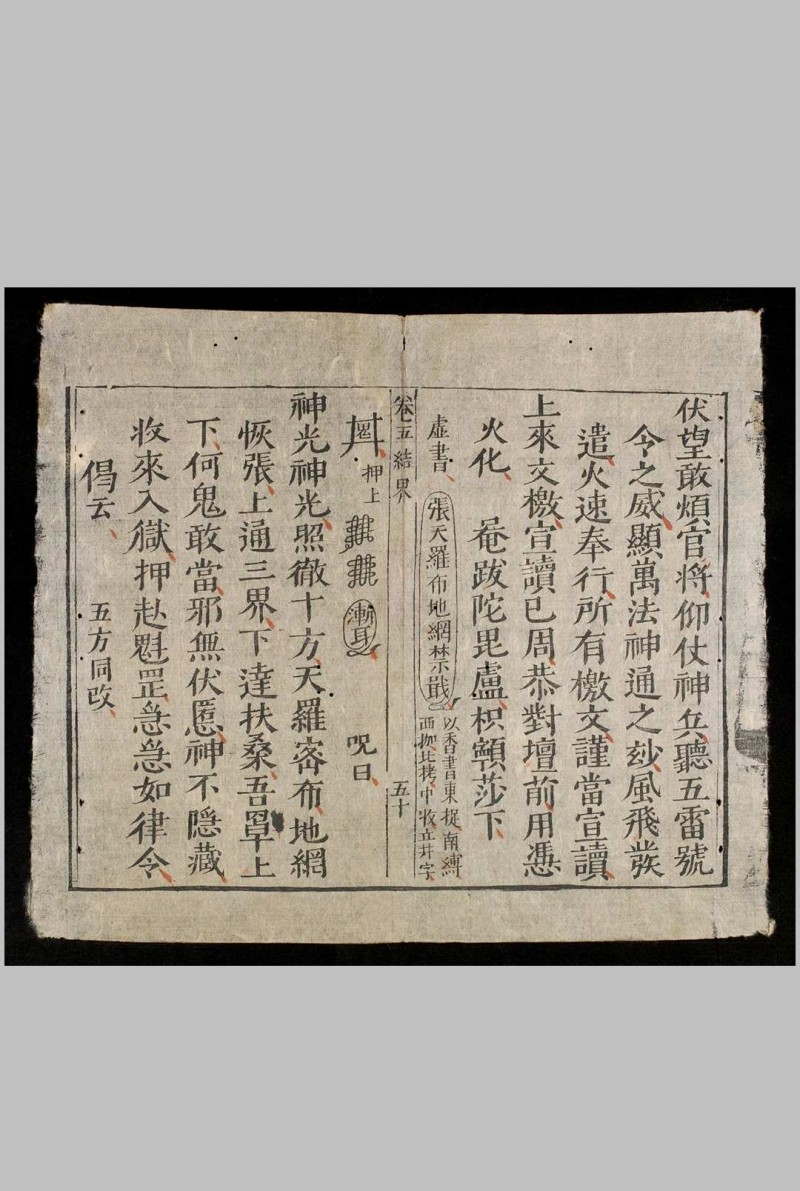 伏望敢煩官將仰仗神兵聽五雷號
令之威顯萬法神通之玅風飛發
遣火速奉行所有檄文謹當宣讀
上來文檄宣讀已周恭對壇前用憑
火化 菴跋陀毘盧枳顊莎下
虛書 張天羅布地網禁戢 以香書東捉南縛
西枷北栲中收立井字
卷五結界 五十
押上 漸耳 呪曰
神光神光照徹十方天羅密布地網
恢張上通三界下達扶桑吾罩上
下何鬼敢當邪無伏慝神不隱藏
收來入獄押赴魁罡急急如律令
偈云 五方同改